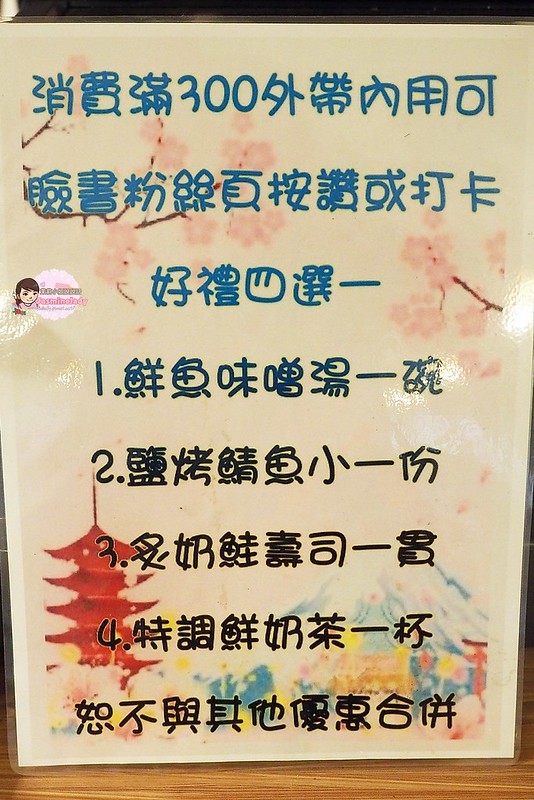 消費滿300外帶內用可
臉書粉絲頁按讚或打卡
好禮四選一
Jasminelady
1.鮮魚味噌湯一碗
2.鹽烤鯖魚小一份
3.炙奶鮭壽司一貫
4.特調鮮奶茶一杯
恕不與其他優惠合併